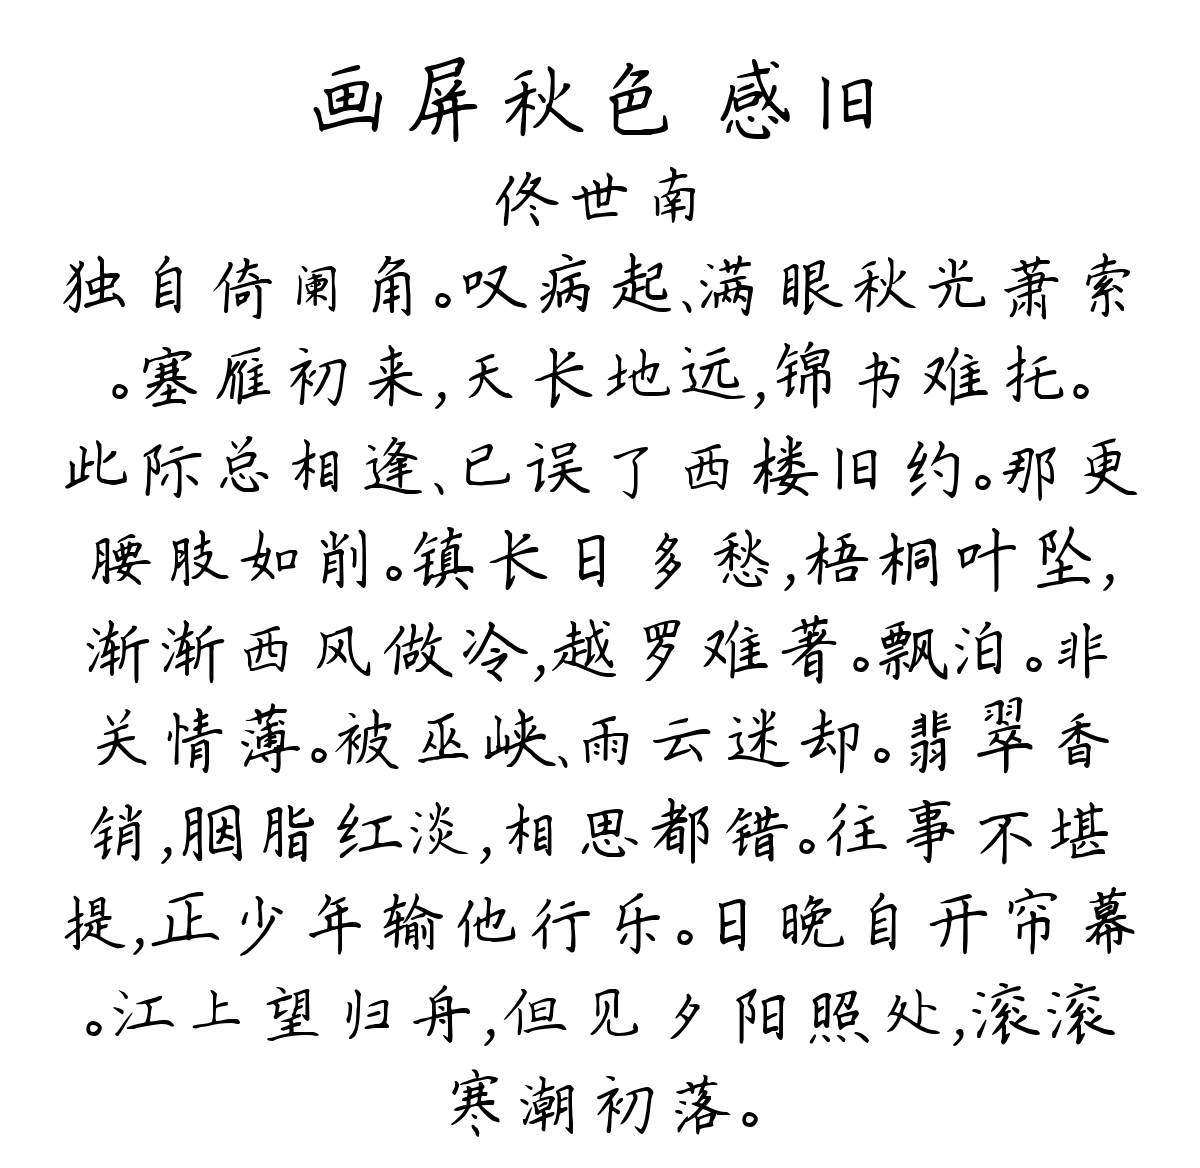 画屏秋色 感旧
佟世南
独自倚阑角。叹病起、满眼秋光萧索
。塞雁初来,天长地远,锦书难托。
此际总相逢、已误了西楼旧约。那更
腰肢如削。镇长日多愁,梧桐叶坠,
渐渐西风做冷,越罗难著。飘泊。非
关情薄。被巫峡、雨云迷却。翡翠香
销,胭脂红淡,相思都错。往事不堪
提,正少年输他行乐。日晚自开帘幕
。江上望归舟,但见夕阳照处,滚滚
寒潮初落。